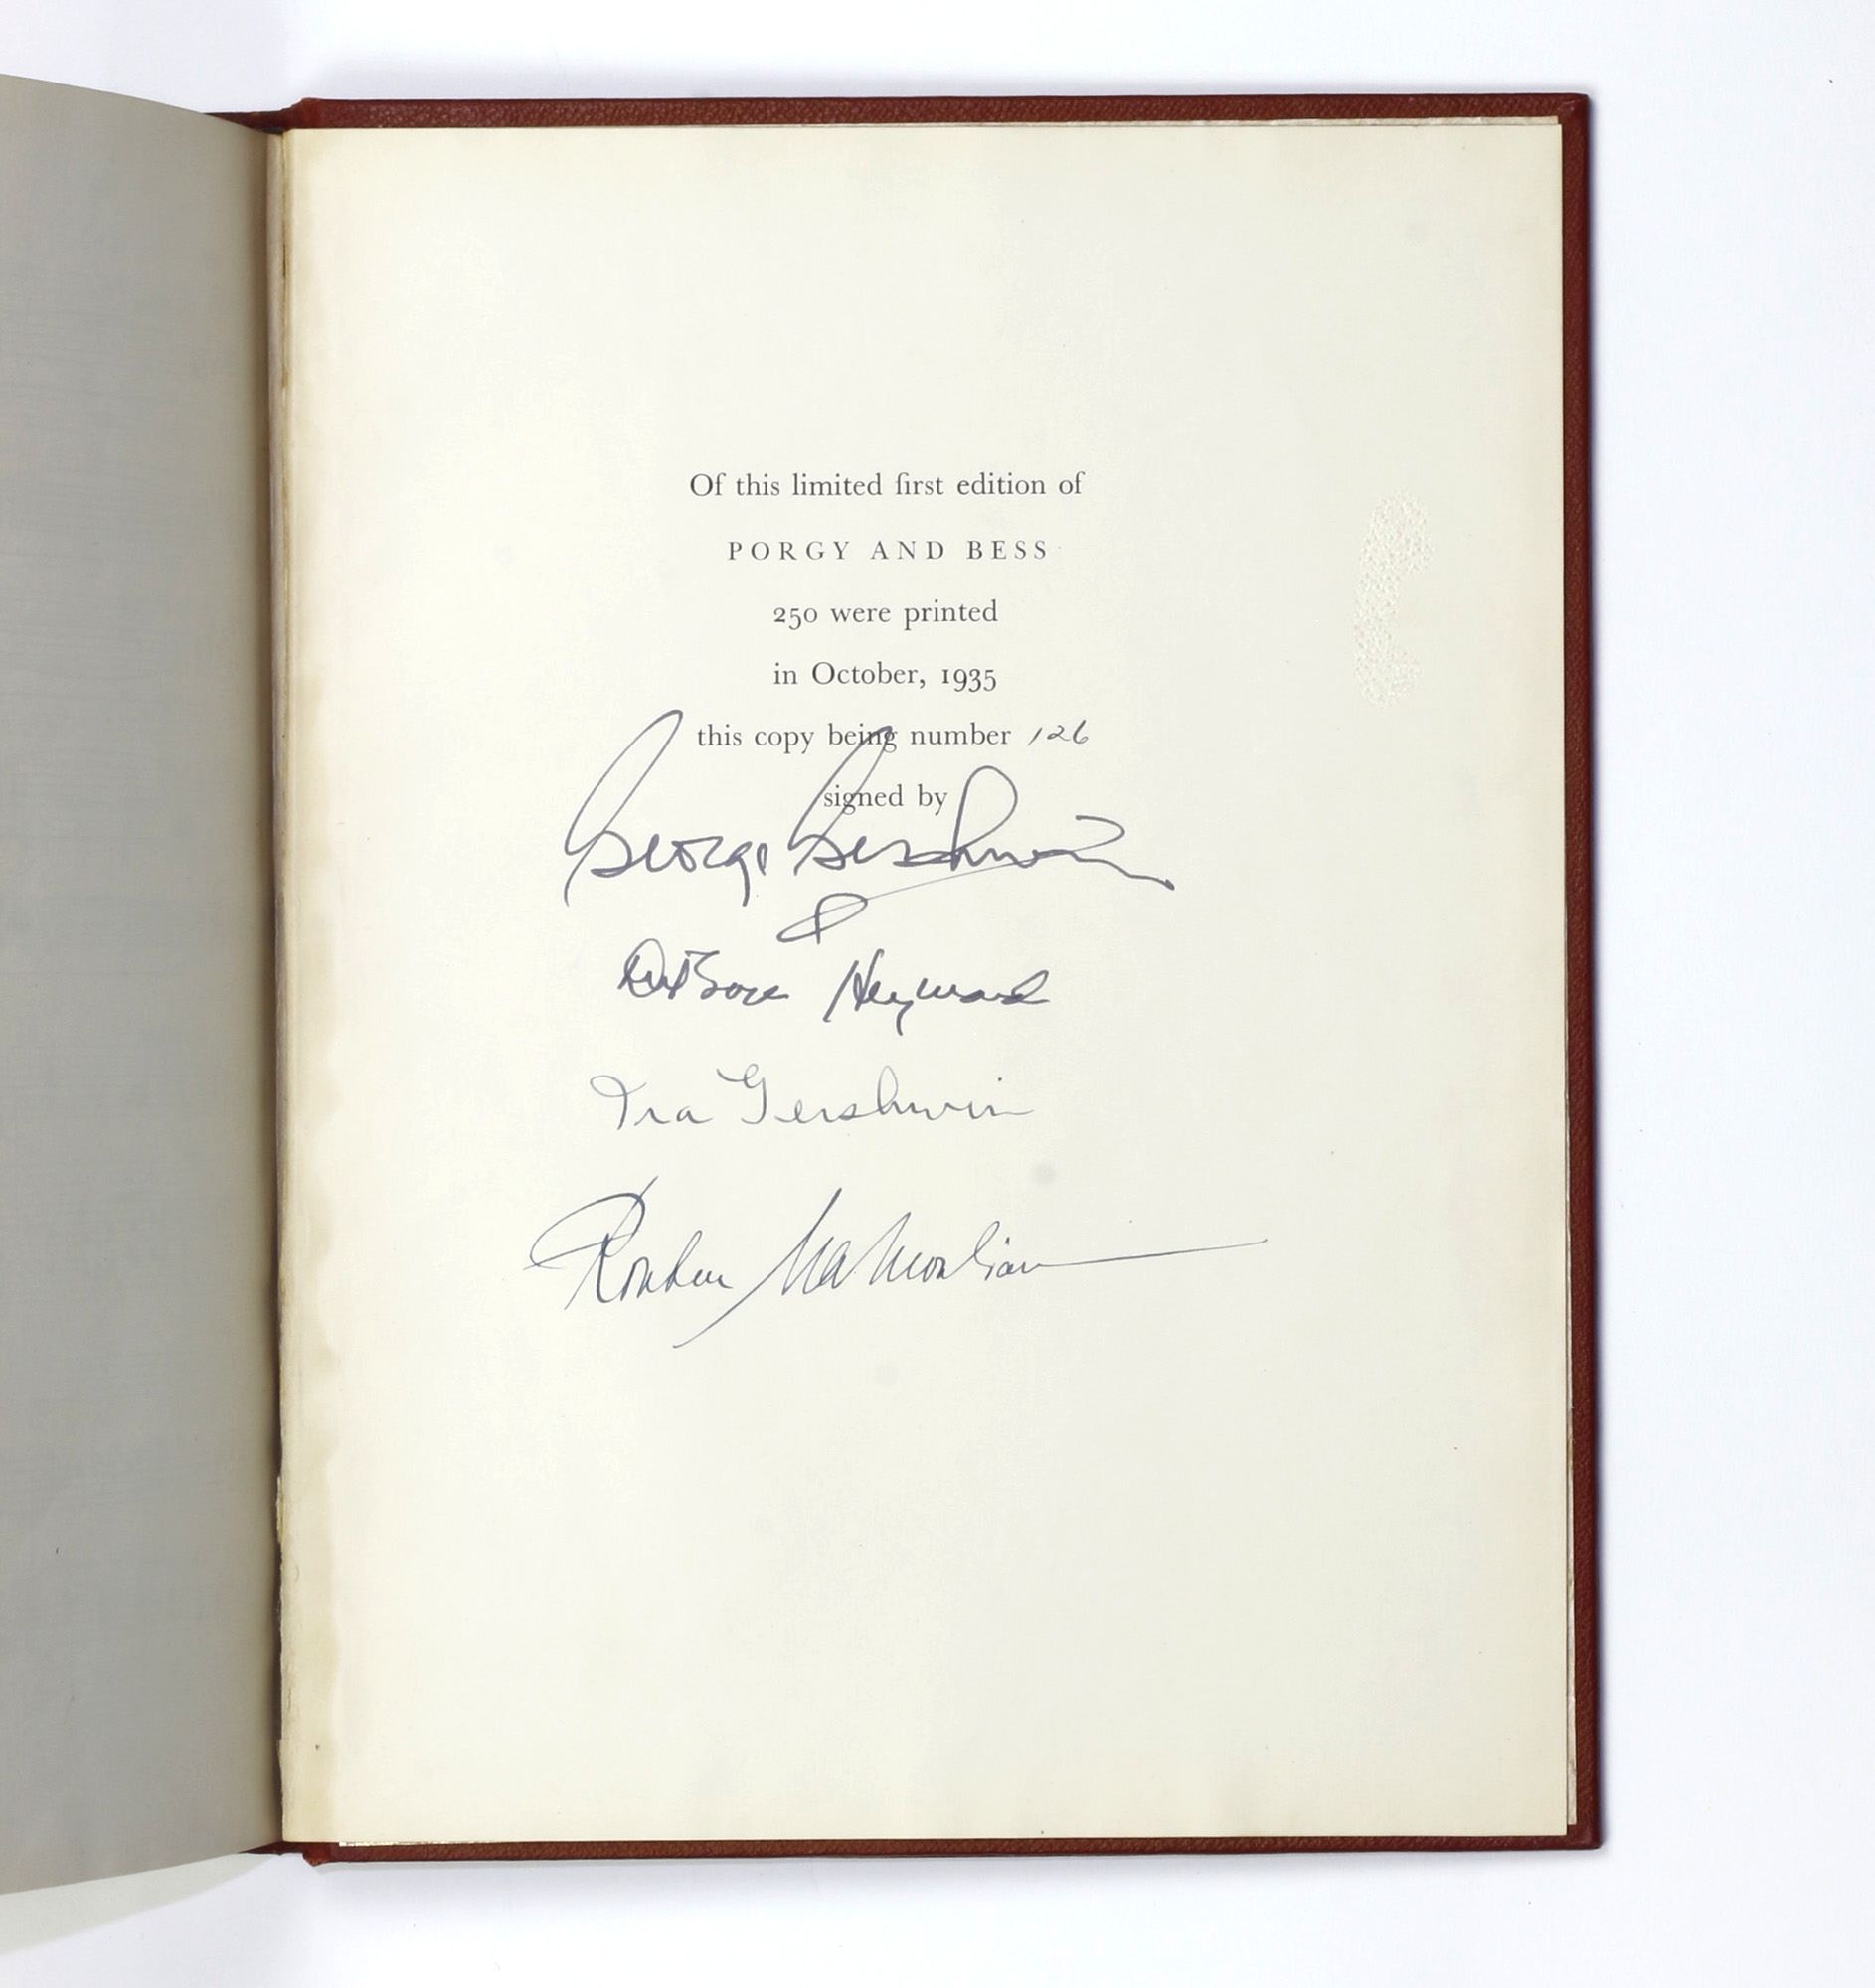 Of this limited first edition of
PORGY AND BESS
250 were printed
in October, 1935
this copy being number 126
signed by
George Gershwin
DuBose Heyward
Ira Gershwin
Rouben Mamoulian